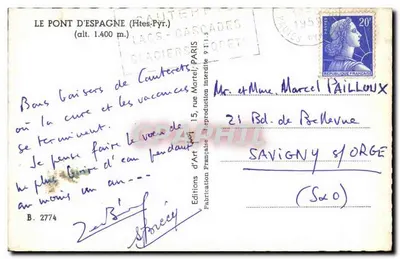 LE PONT D'ESPAGNE (Htes-Pyr.)
(alt. 1.400 m.)
LACS - CASCADES
1958
20F
Bons baisers de Cauterets
où la cure et les vacances
se terminent.
Je pense faire le vœu de
ne plus boire d'eau pendant
au moins un an ---
B. 2774
Editions d'Art 15, rue Martel, PARIS
Fabrication Française - Reproduction interdite
Mr. et Mme. Marcel PAILLOUX
21 Bd. de Bellevue
SAVIGNY s/ORGE
(S&O)